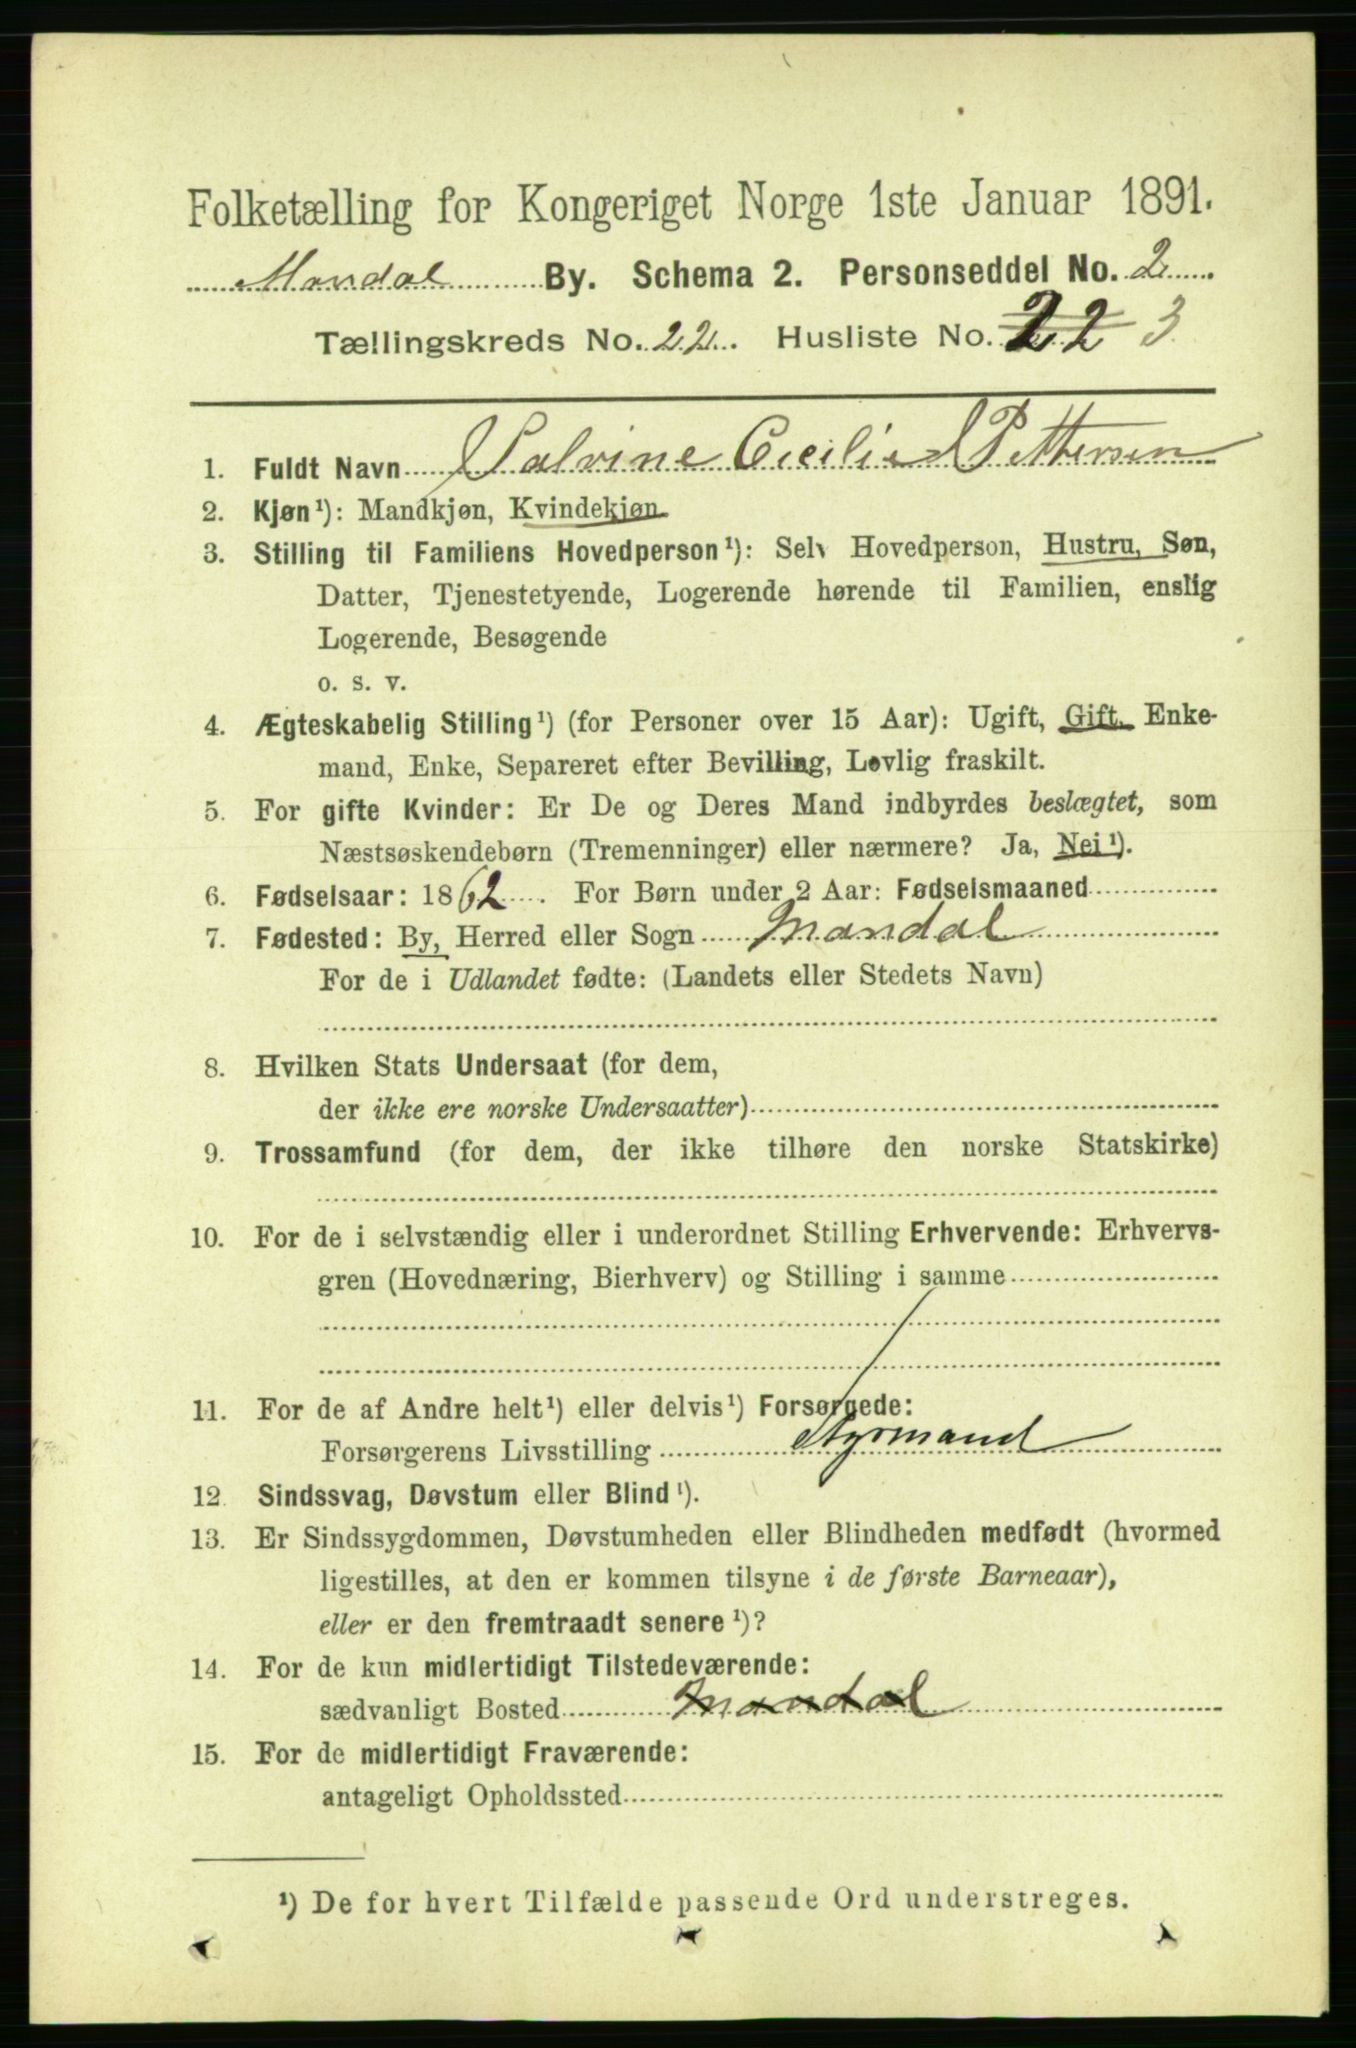 Folketælling for Kongeriget Norge 1ste Januar 1891.
Mandal By. Schema 2. Personseddel No. 2
Tællingskreds No. 22. Husliste No. 22 3
1. Fuldt Navn Salvine Cecilie Pettersen
2. Kjøn ¹): Mandkjøn, Kvindekjøn
3. Stilling til Familiens Hovedperson ¹): Selv Hovedperson, Hustru, Søn,
Datter, Tjenestetyende, Logerende hørende til Familien, enslig
Logerende, Besøgende
o. s. v.
4. Ægteskabelig Stilling ¹) (for Personer over 15 Aar): Ugift, Gift, Enke-
mand, Enke, Separeret efter Bevilling, Lovlig fraskilt.
5. For gifte Kvinder: Er De og Deres Mand indbyrdes beslægtet, som
Næstsøskendebørn (Tremenninger) eller nærmere? Ja, Nei ¹).
6. Fødselsaar: 1862. For Børn under 2 Aar: Fødselsmaaned
7. Fødested: By, Herred eller Sogn Mandal
For de i Udlandet fødte: (Landets eller Stedets Navn)
8. Hvilken Stats Undersaat (for dem,
der ikke ere norske Undersaatter)
9. Trossamfund (for dem, der ikke tilhøre den norske Statskirke)
10. For de i selvstændig eller i underordnet Stilling Erhvervende: Erhvervs-
gren (Hovednæring, Bierhverv) og Stilling i samme
11. For de af Andre helt ¹) eller delvis ¹) Forsørgede:
Forsørgerens Livsstilling Styrmand
12. Sindssvag, Døvstum eller Blind ¹).
13. Er Sindssygdommen, Døvstumheden eller Blindheden medfødt (hvormed
ligestilles, at den er kommen tilsyne i de første Barneaar),
eller er den fremtraadt senere ¹)?
14. For de kun midlertidigt Tilstedeværende:
sædvanligt Bosted Mandal
15. For de midlertidigt Fraværende:
antageligt Opholdssted
¹) De for hvert Tilfælde passende Ord understreges.